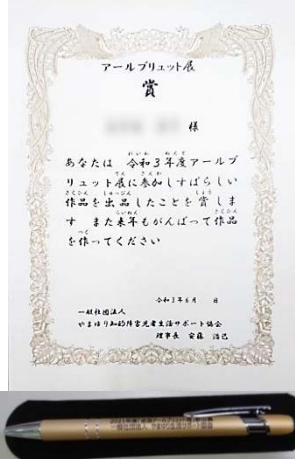 アールブリュット展
賞
様
あなたは 令和3年度アールブ
リュット展に参加しすばらしい
作品を出品したことを賞しま
す また来年もがんばって作品
を作ってください
令和3年6月 日
一般社団法人
やまゆり知的障害児者生活サポート協会
理事長 安藤 浩己